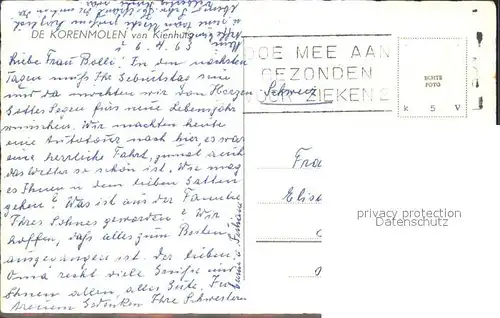 DE KORENMOLEN van Kienhuizen
6.4.63
Liebe Frau Bolli! In den nächsten
Tagen muß Ihr Geburtstag sein
und da möchten wir von Herzen
Gottes Segen fürs neue Lebensjahr
wünschen. Wir machten heute
eine Autotour nach hier, es war
eine herrliche Fahrt, zumal auch
das Wetter so schön ist. Wie mag
es Ihnen u dem lieben Gatten
gehen? Was ist aus der Familie
Ihres Sohnes geworden? Wir
hoffen, daß alles zum Besten
ausgegangen ist. Der lieben
Oma recht viele Grüße und
Ihnen allen alles Gute. In
treuem Gedenken Ihre Schwestern
DOE MEE AAN
GEZONDEN
VOOR ZIEKEN
Schweiz
ECHTE
FOTO
k 5 V
Fra
Elisa
privacy protection
Datenschutz